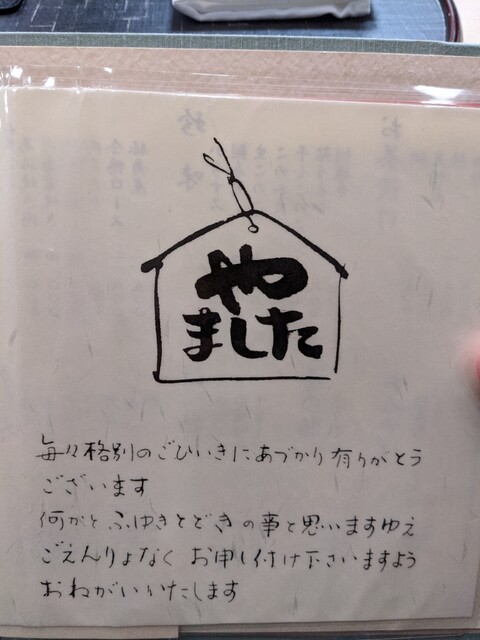 や
ました
毎々格別のごひいきにあづかり有りがとう
ございます
何かとふゆきとどきの事と思いますゆえ
ごえんりょなく お申し付け下さいますよう
おねがいいたします